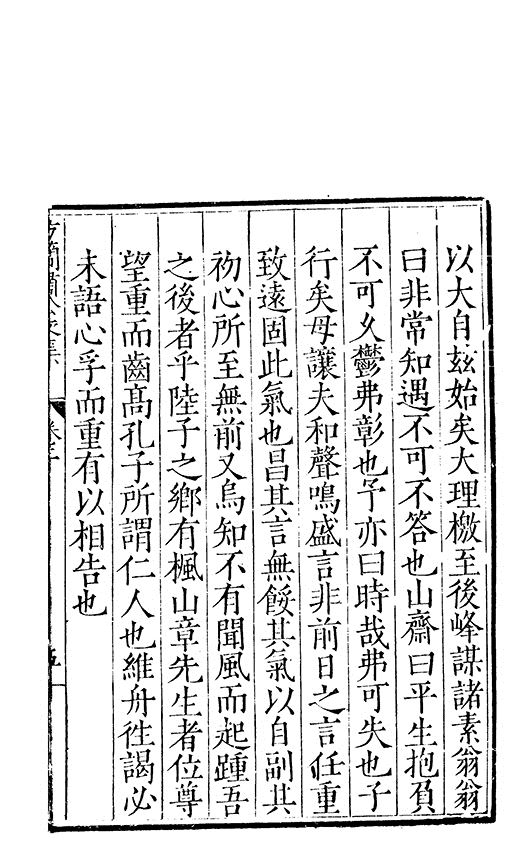 以大自玆始矣大理檄至後峰謀諸素翁翁
曰非常知遇不可不答也山齋曰平生抱負
不可乆鬱弗彰也予亦曰時哉弗可失也子
行矣毋讓夫和聲鳴盛言非前日之言任重
致遠固此氣也昌其言無餒其氣以自副其
初心所至無前又烏知不有聞風而起踵吾
之後者乎陸子之鄉有楓山章先生者位尊
望重而齒髙孔子所謂仁人也維舟徃謁必
未語心孚而重有以相告也
方簡肅公文集
卷三
五